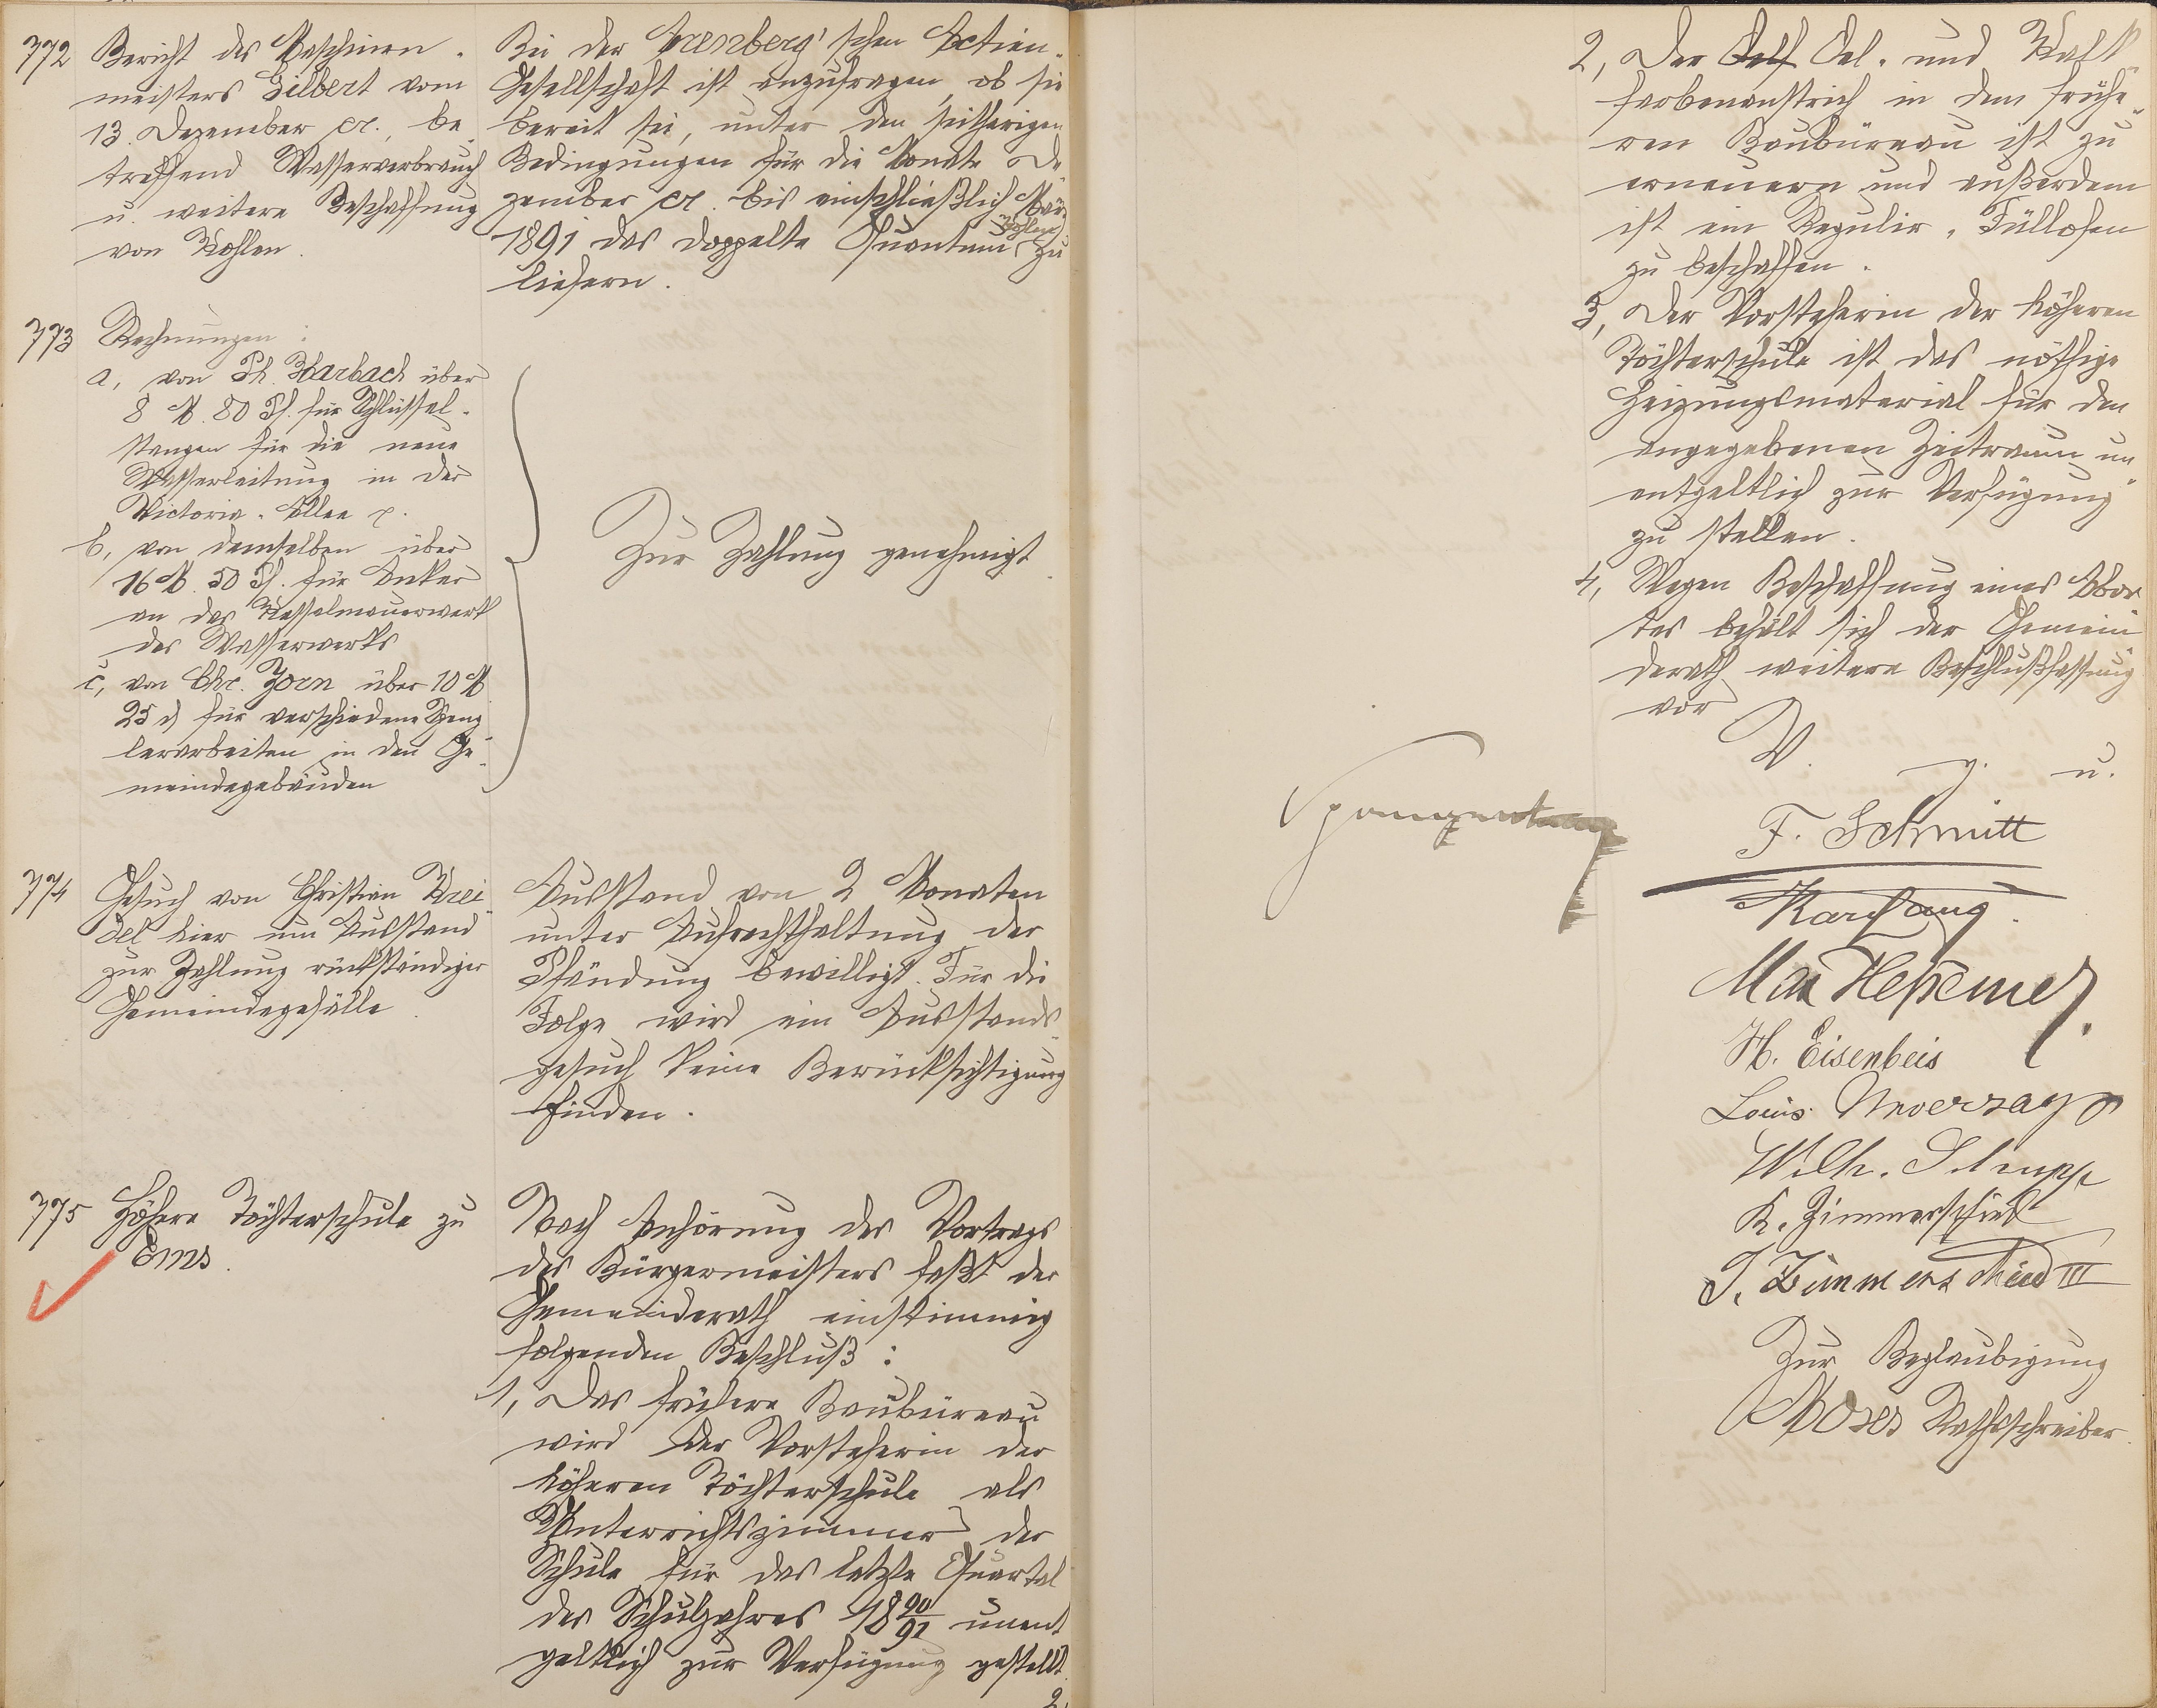 772 Bericht des Maschinen-
meisters Gilbert vom
13. Dezember cr., be-
treffend Wasserverbrauch
u. weitere Beschaffung
von Kohlen.
Bei der Arenberg'schen Actien-
Gesellschaft ist anzufragen, ob sie
bereit sei, unter den seitherigen
Bedingungen für die Monate De-
zember cr. bis einschließlich März
1891 das doppelte Quantum Kohlen zu
liefern.
773 Rechnungen:
a, von Ph. Harbach über
8 M. 80 Pf. für Schlüssel-
stangen für die neue
Wasserleitung in der
Victoria-Allee p.
b, von demselben über
16 M. 50 Pf. für Anker
an das Kesselmauerwerk
des Wasserwerks
c, von Chr. Zorn über 10 M
25 d für verschiedene Speng-
lerarbeiten in den Ge-
meindegebäuden
Zur Zahlung genehmigt.
774 Gesuch von Christian Krei-
del hier um Ausstand
zur Zahlung rückständiger
Gemeindegefälle.
Ausstand von 2 Monaten
unter Aufrechthaltung der
Pfändung bewilligt. Für die
Folge wird ein Ausstands-
gesuch keine Berücksichtigung
finden.
775 Höhere Töchterschule zu
Ems.
Nach Anhörung des Vortrags
des Bürgermeisters faßt der
Gemeinderath einstimmig
folgenden Beschluß:
1, Das frühere Baubüreau
wird der Vorsteherin der
höheren Töchterschule als
Unterrichtszimmer der
Schule für das letzte Quartal
des Schuljahres 1890/91 unent
geltlich zur Verfügung gestellt.
2,
2, Der Oelf Oel- und Kalk-
farbenanstrich in dem frühe-
ren Baubüreau ist zu
erneuern und außerdem
ist ein Regulir-Füllofen
zu beschaffen.
3, Der Vorsteherin der höheren
Töchterschule ist das nöthige
Heizungsmaterial für den
angegebenen Zeitraum un-
entgeltlich zur Verfügung
zu stellen.
4, Wegen Beschaffung eines Abor-
tes behält sich der Gemein-
derath weitere Beschlußfassung
vor
V. g. u.
F. Schmitt
Max
H. Eisenbeis
Louis Unverzagt
Wilh. Schupp
K. Zimmerschied
J. Zimmerschied III
Zur Beglaubigung
Moses Rathsschreiber.